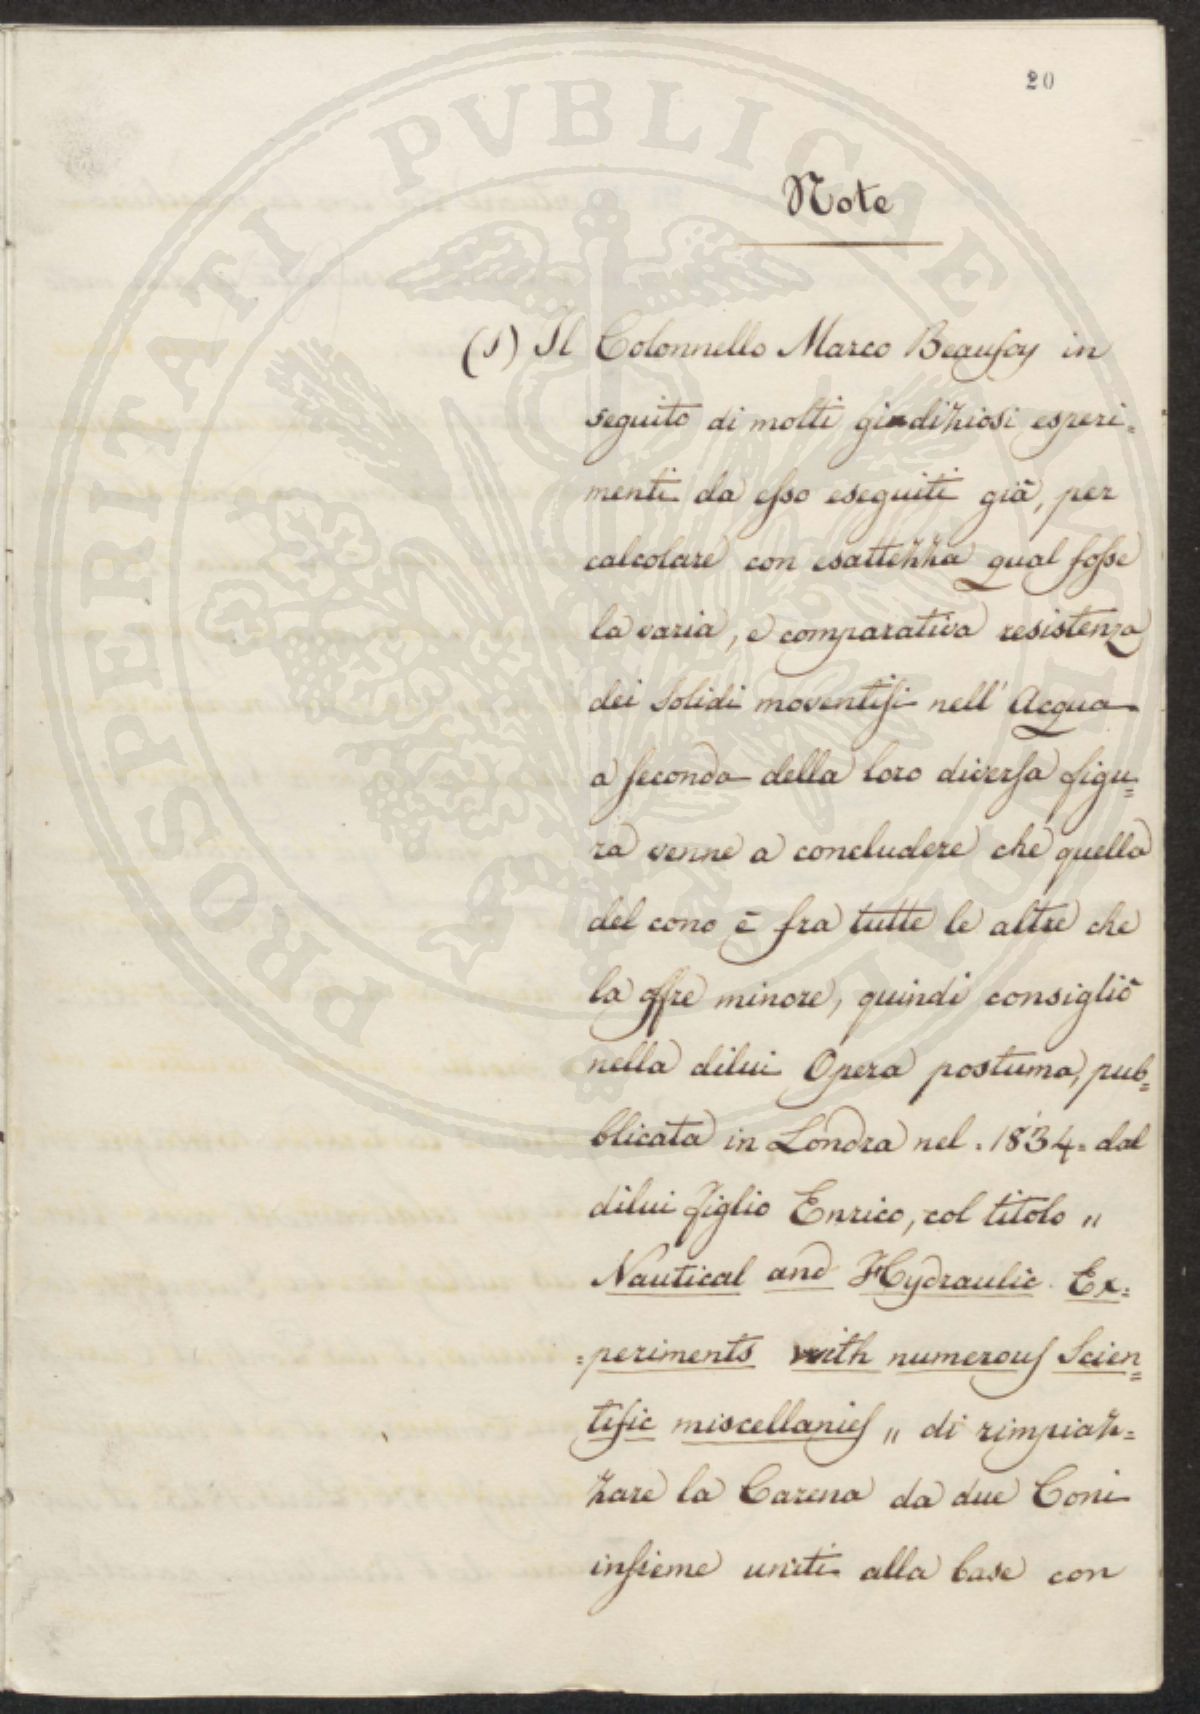 20
Note
(1) Il Colonnello Marco Beaufoy in
seguito di molti giudiziosi esperi=
menti da esso eseguiti già, per
calcolare con esattezza qual fosse
la varia, e comparativa resistenza
dei solidi moventisi nell' Acqua
a seconda della loro diversa figu=
ra venne a concludere che quella
del cono è fra tutte le altre che
la offre minore, quindi consigliò
nella dilui Opera postuma, pub=
blicata in Londra nel . 1834 . dal
dilui figlio Enrico, col titolo "
Nautical and Hydraulic Ex=
=periments with numerous Scien=
tific miscellanies " di rimpiaz=
zare la Carena da due Coni
insieme uniti alla base con
PROSPERITATI PVBLICAE